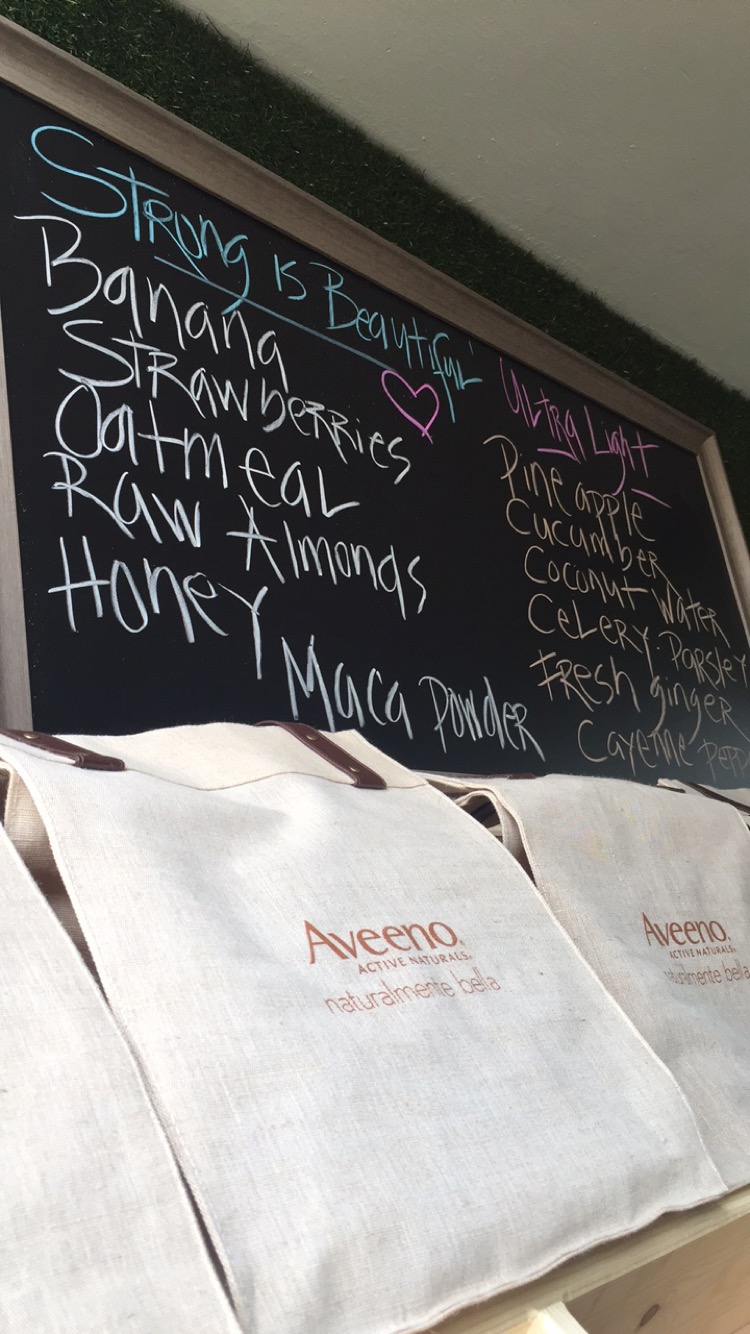 Strong is Beautiful
Banana
Strawberries
Oatmeal
Raw Almonds
Honey
Maca Powder
Ultra Light
Pineapple
Cucumber
Coconut water
Celery. Parsley
Fresh ginger
Cayenne
Aveeno.
ACTIVE NATURALS®
naturalmente bella
Aveeno.
ACTIVE NATURALS®
naturalmente bella